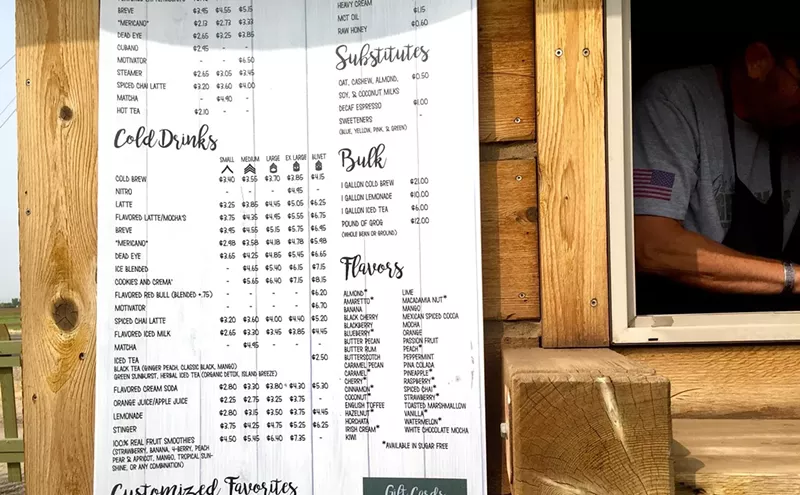 BREVE $3.95 $4.55 $5.15
"MERICANO" $2.13 $2.73 $3.33
DEAD EYE $2.65 $3.25 $3.85
CUBANO $2.95 - -
MOTIVATOR - - $6.50
STEAMER $2.65 $3.05 $3.45
SPICED CHAI LATTE $3.20 $3.60 $4.00
MATCHA - $4.90 -
HOT TEA $2.10 - -
Cold Drinks
SMALL MEDIUM LARGE EX LARGE BLIVET
COLD BREW $3.40 $3.55 $3.70 $3.85 $4.15
NITRO - - - $4.95 -
LATTE $3.25 $3.85 $4.45 $5.05 $6.25
FLAVORED LATTE/MOCHA'S $3.75 $4.35 $4.95 $5.55 $6.75
BREVE $3.95 $4.55 $5.15 $5.75 $6.95
"MERICANO" $2.98 $3.58 $4.18 $4.78 $5.98
DEAD EYE $3.65 $4.25 $4.85 $5.45 $6.65
ICE BLENDED - $4.65 $5.40 $6.15 $7.15
COOKIES AND CREMA* - $5.65 $6.40 $7.15 $8.15
FLAVORED RED BULL (BLENDED +.75) - - - $6.20
MOTIVATOR - - - - $6.70
SPICED CHAI LATTE $3.20 $3.60 $4.00 $4.40 $5.20
FLAVORED ICED MILK $2.65 $3.30 $3.45 $3.85 $4.45
MATCHA - $4.95 - - -
ICED TEA $2.50
BLACK TEA (GINGER PEACH, CLASSIC BLACK, MANGO)
GREEN SUNBURST, HERBAL ICED TEA (ORGANIC DETOX, ISLAND BREEZE)
FLAVORED CREAM SODA $2.80 $3.30 $3.80 $4.30 $5.30
ORANGE JUICE/APPLE JUICE $2.25 $2.75 $3.25 $3.75 -
LEMONADE $2.80 $3.15 $3.50 $3.75 $4.45
STINGER $3.75 $4.25 $4.75 $5.25 $6.25
100% REAL FRUIT SMOOTHIES $4.50 $5.45 $6.40 $7.35 -
(STRAWBERRY, BANANA, 4-BERRY, PEACH
PEAR & APRICOT, MANGO, TROPICAL SUN-
SHINE, OR ANY COMBINATION)
Customized Favorites
HEAVY CREAM
MCT OIL $1.15
RAW HONEY $0.60
Substitutes
OAT, CASHEW, ALMOND, $0.50
SOY, & COCONUT MILKS
DECAF ESPRESSO $1.00
SWEETENERS -
(BLUE, YELLOW, PINK, & GREEN)
Bulk
1 GALLON COLD BREW $21.00
1 GALLON LEMONADE $10.00
1 GALLON ICED TEA $6.00
POUND OF GROG $12.00
(WHOLE BEAN OR GROUND)
Flavors
ALMOND*
AMARETTO*
BANANA
BLACK CHERRY
BLACKBERRY
BLUEBERRY*
BUTTER PECAN
BUTTER RUM
BUTTERSCOTCH
CARAMEL PECAN
CARAMEL*
CHERRY*
CINNAMON*
COCONUT*
ENGLISH TOFFEE
HAZELNUT*
HORCHATA
IRISH CREAM*
KIWI
LIME
MACADAMIA NUT*
MANGO
MEXICAN SPICED COCOA
MOCHA
ORANGE
PASSION FRUIT
PEACH*
PEPPERMINT
PINA COLADA
PINEAPPLE*
RASPBERRY*
SPICED CHAI*
STRAWBERRY*
TOASTED MARSHMALLOW
VANILLA*
WATERMELON*
WHITE CHOCOLATE MOCHA
*AVAILABLE IN SUGAR FREE
Gift Cards